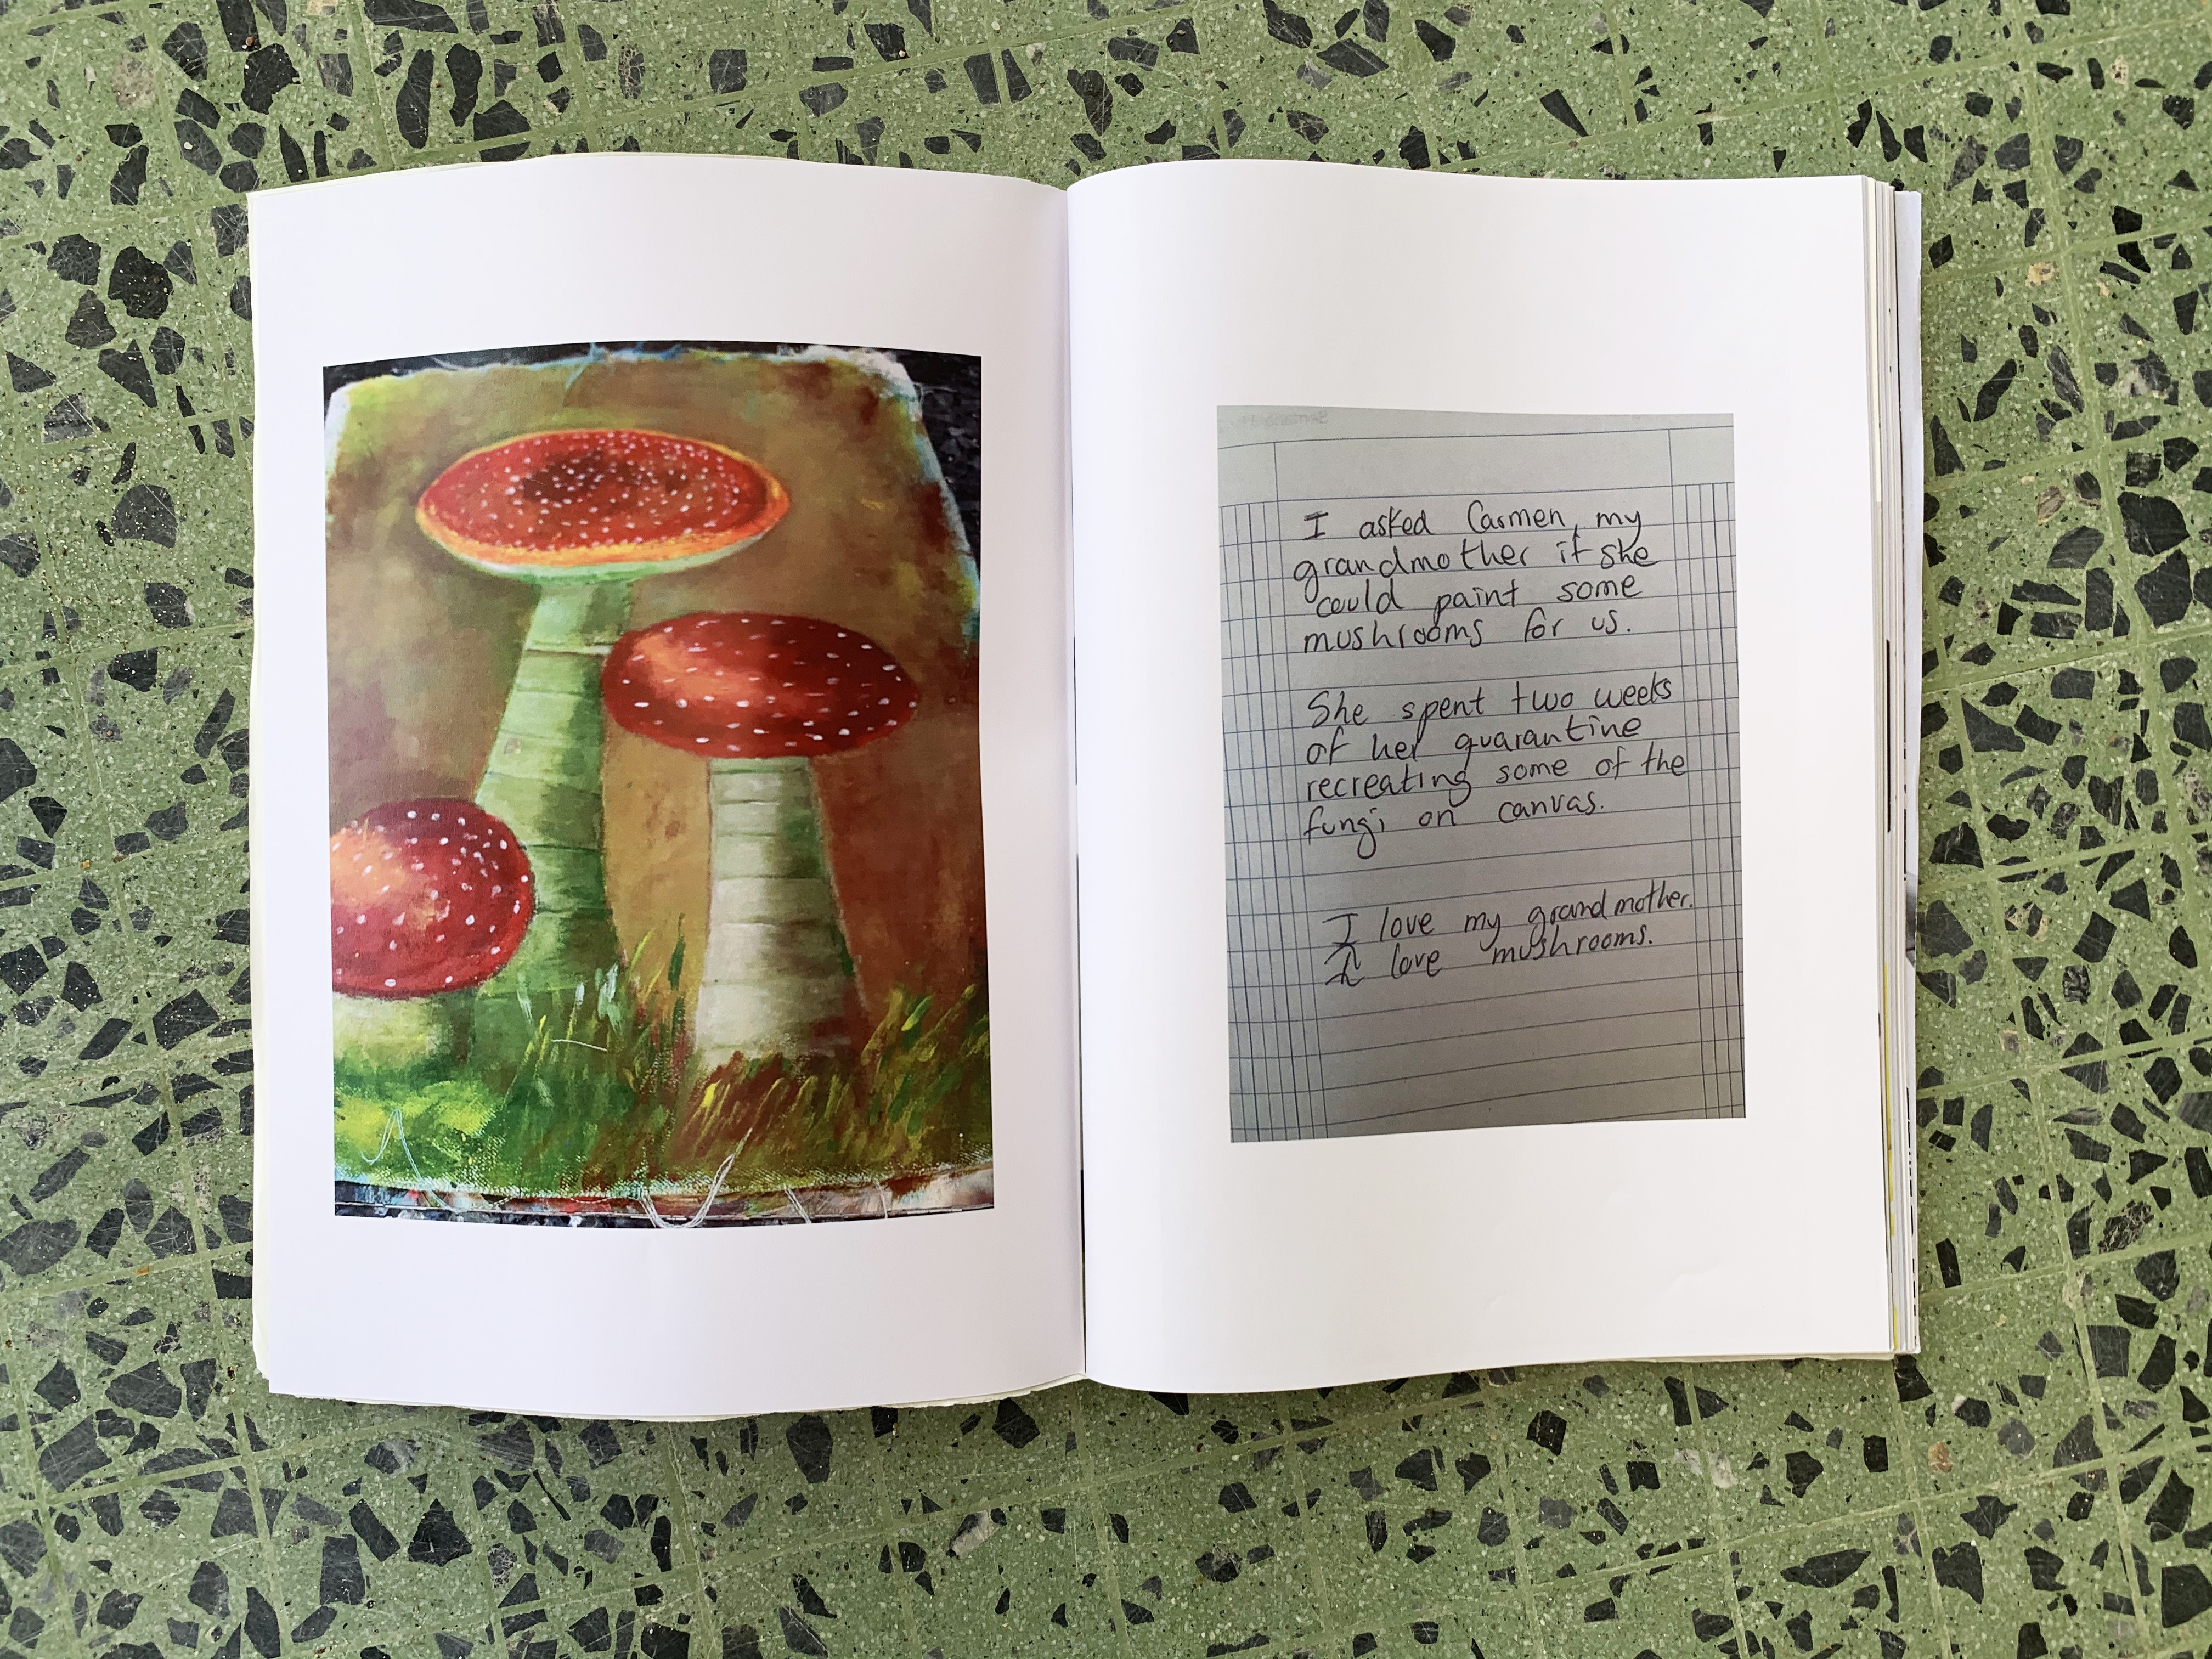 I asked Carmen, my
grandmother if she
could paint some
mushrooms for us.
She spent two weeks
of her quarantine
recreating some of the
fungi on canvas.
I love my grandmother.
I love mushrooms.